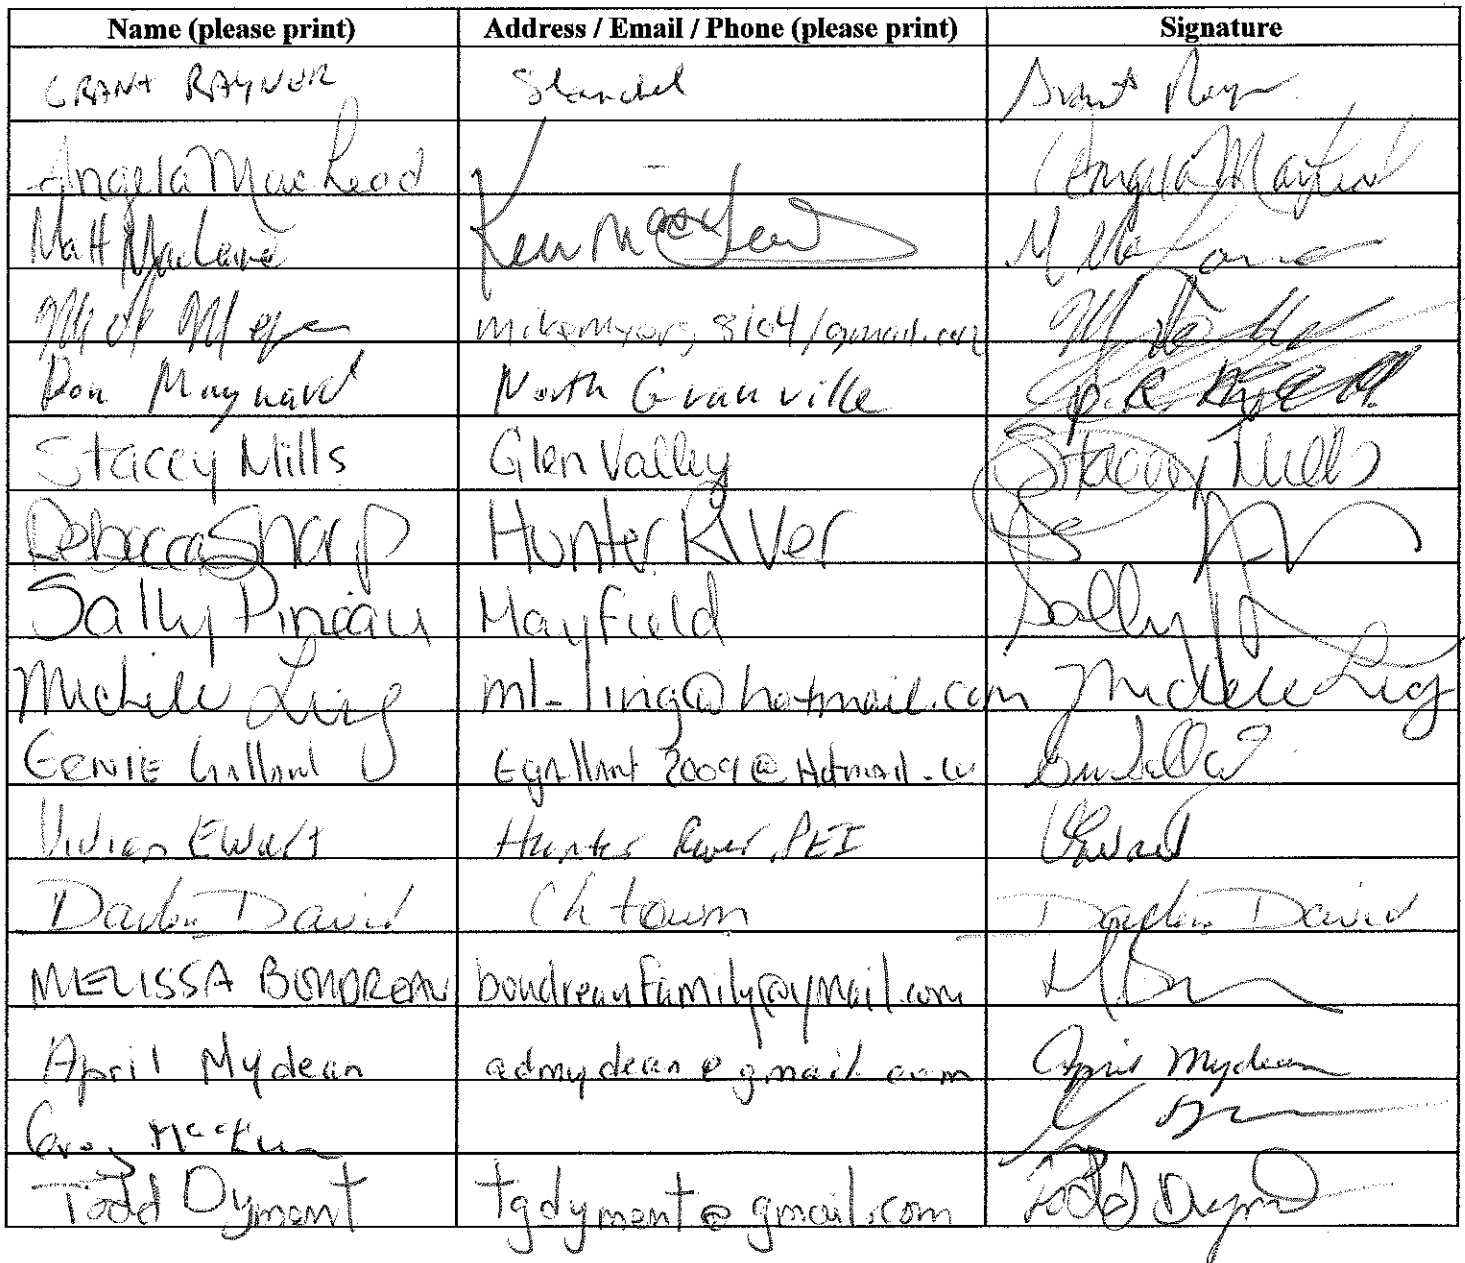 Name (please print) Address / Email / Phone (please print) Signature
GRANT RAYNER Stanchel Grant Rayn
Angela MacLeod Angela MacLeod
Matt MacLane Ken MacLeod M MacLane
North Granville
Don Maynard
Stacey Mills Glen Valley Stacey Mills
Rebecca Sharp Hunter River
Sally Pineau Mayfield Sally P
Michele Ling ml-ling@hotmail.com Michele Ling
ERNIE Gallant Egallant2009@Hotmail.
Vivian Ewart Hunter River, PEI VEwart
David Ch town David
MELISSA BOUDREAU boudreaufamily@ymail.com
April Mydean admydean@gmail.com April Mydean
Todd Dyment tgdyment@gmail.com Todd Dyment